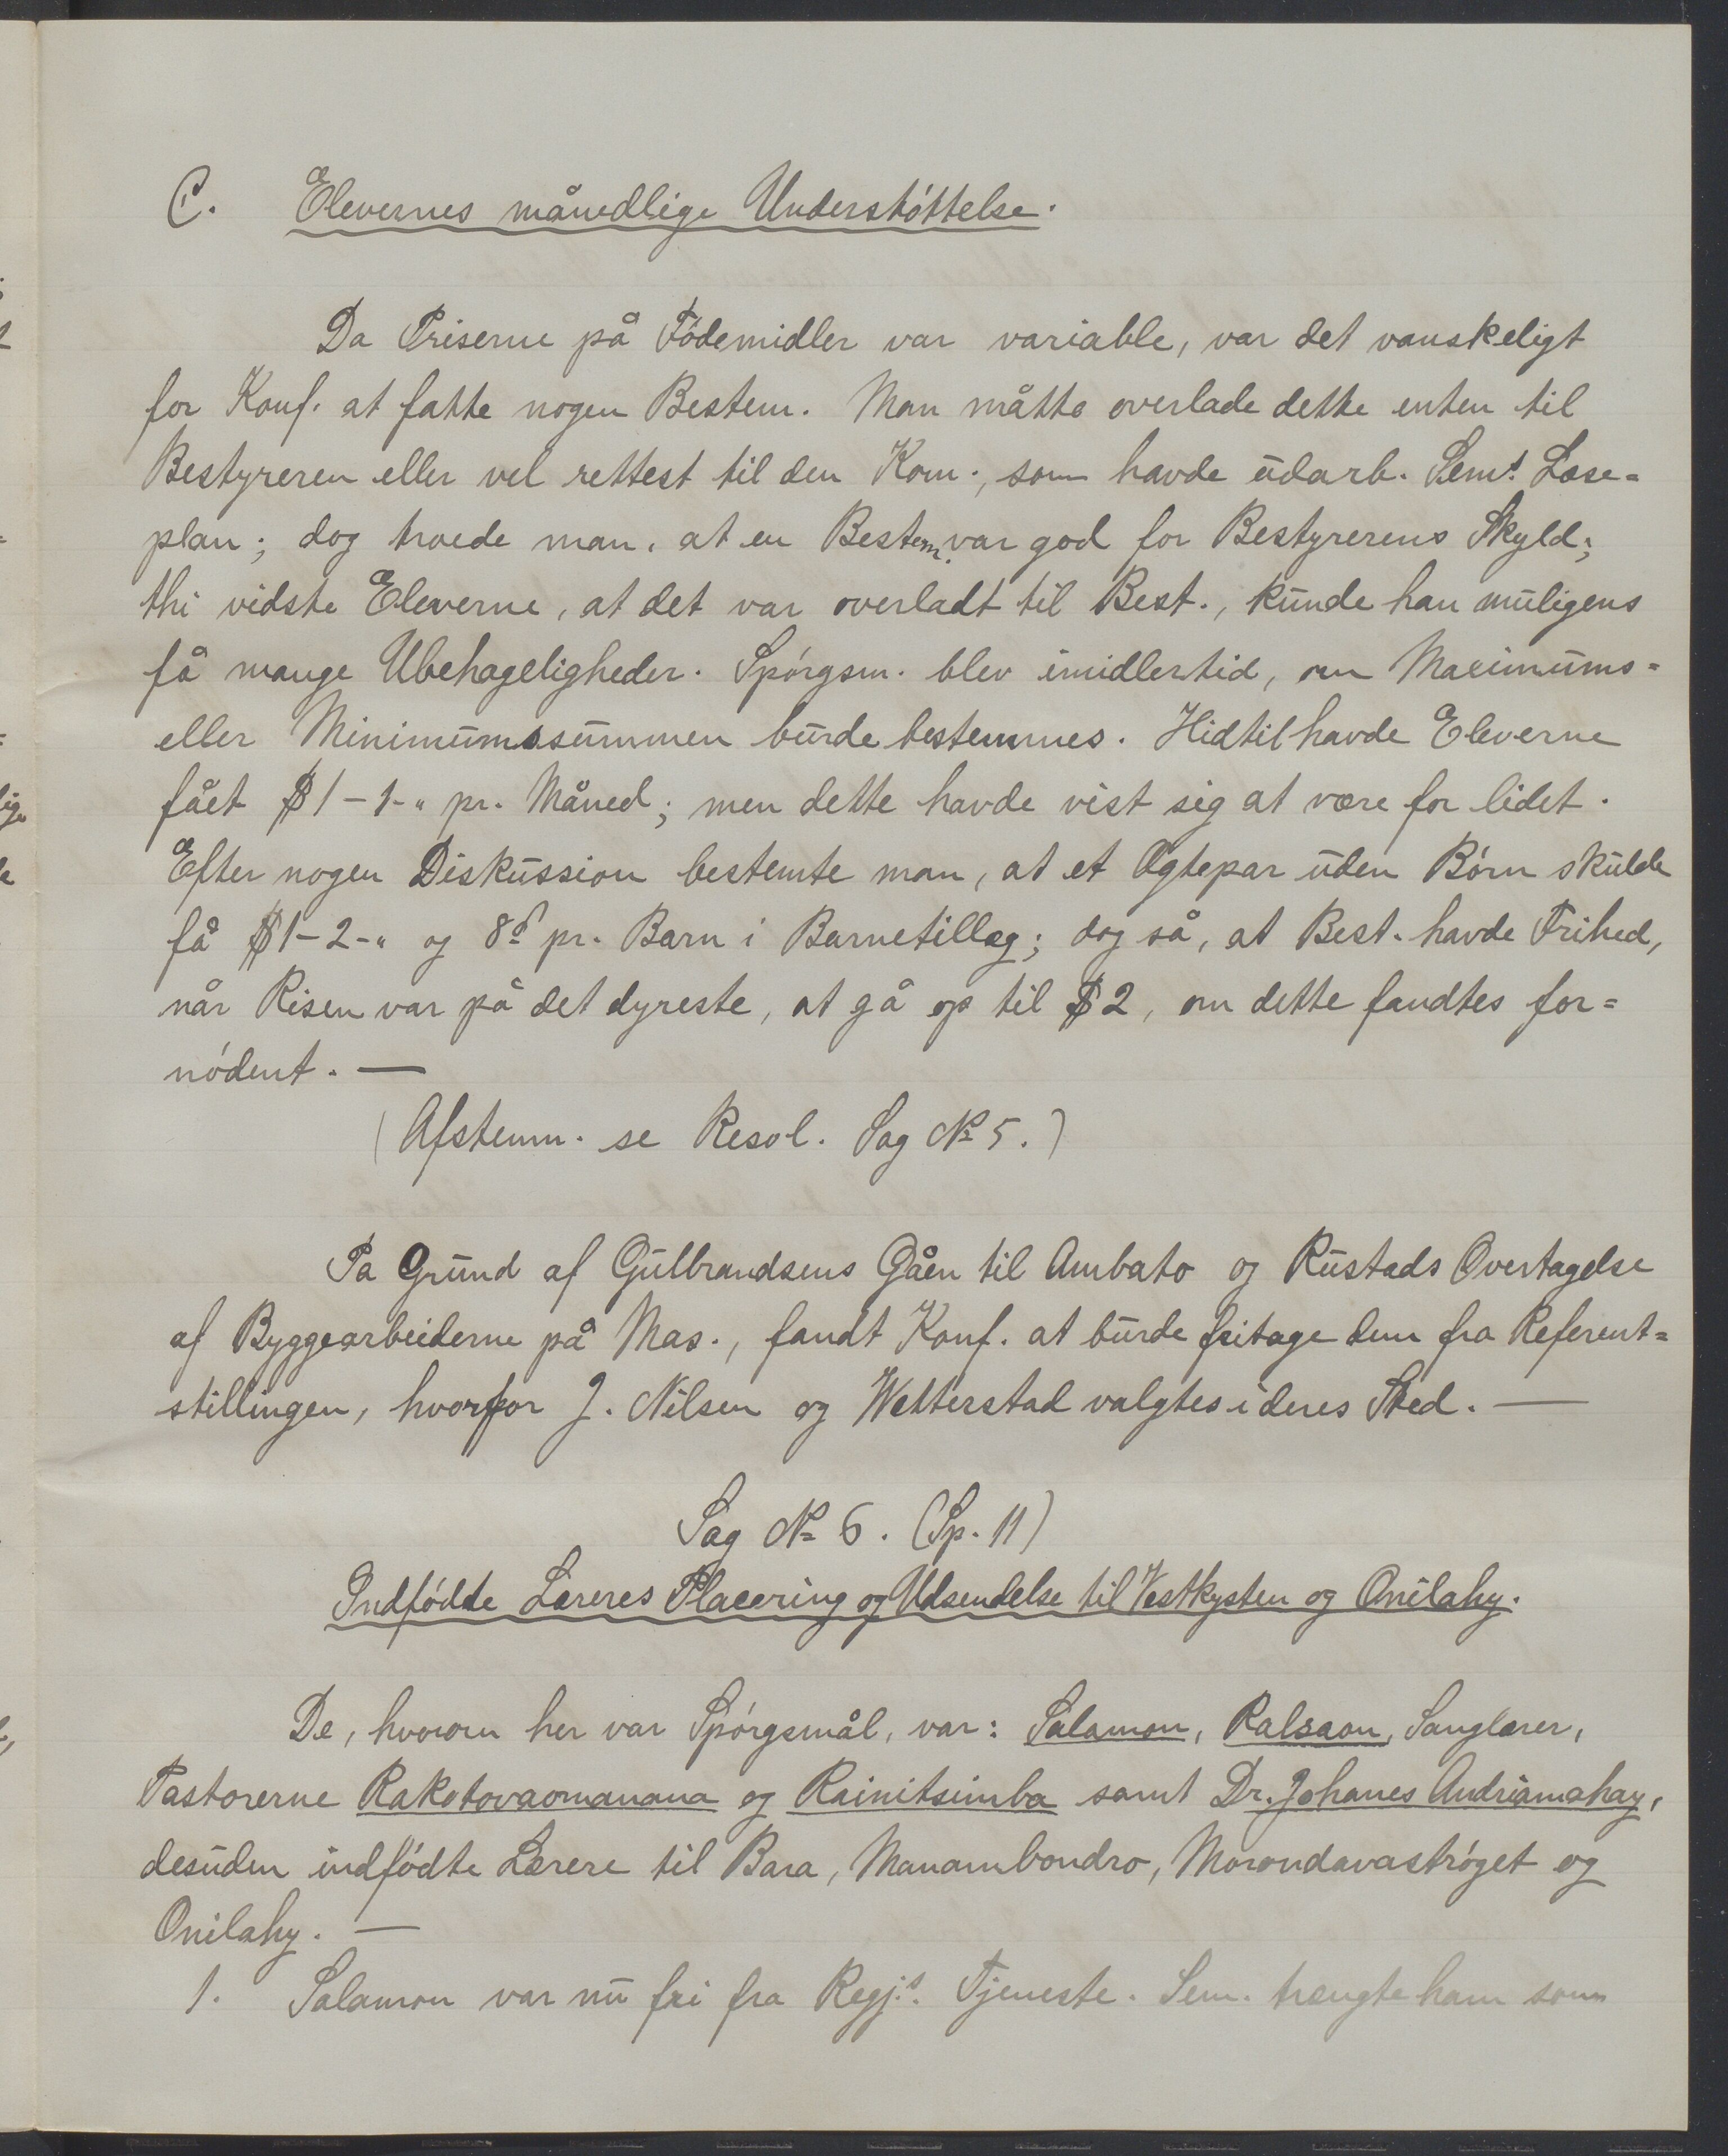 C. Elevernes månedlige Understøttelse.
Da Priserne på Fødemidler var variable, var det vanskeligt
for Konf. at fatte nogen Bestem. Man måtte overlade dette enten til
Bestyreren eller vel rettest til den Kom., som havde udarb. Sem.s Læse=
plan; dog troede man, at en Bestem. var god for Bestyrerens Skyld;
thi vidste Eleverne, at det var overladt til Best., kunde han muligens
få mange Ubehageligheder. Spørgsm. blev imidlertid, om Maximums=
eller Minimumssummen burde bestemmes. Hidtil havde Eleverne
fået $1-1-" pr. Måned; men dette havde vist sig at være for lidet.
Efter nogen Diskussion bestemte man, at et Ægtepar uden Børn skulde
få $1-2-" og 8d pr. Barn i Barnetillæg; dog så, at Best. havde Frihed,
når Risen var på det dyreste, at gå op til $2, om dette fandtes for=
nødent. —
(Afstemm. se Resol. Sag No 5.)
Pa Grund af Gulbrandsens Gåen til Ambato og Rustads Overtagelse
af Byggearbeiderne på Mas., fandt Konf. at burde fritage dem fra Referent=
stillingen, hvorfor J. Nilsen og Wetterstad valgtes i deres Sted. —
Sag No 6. (Sp. 11)
Indfødde Læreres Placering og Udsendelse til Vestkysten og Onilahy.
De, hvorom her var Spørgsmål, var: Salamon, Ralsaon, Sanglærer,
Pastorerne Rakotovaomanana og Rainitsimba samt Dr. Johanes Andriamahay,
desuden indfødte Lærere til Bara, Manambondro, Morondavastrøget og
Onilahy. —
1. Salamon var nu fri fra Regj.s Tjeneste. Sem. trængte ham som